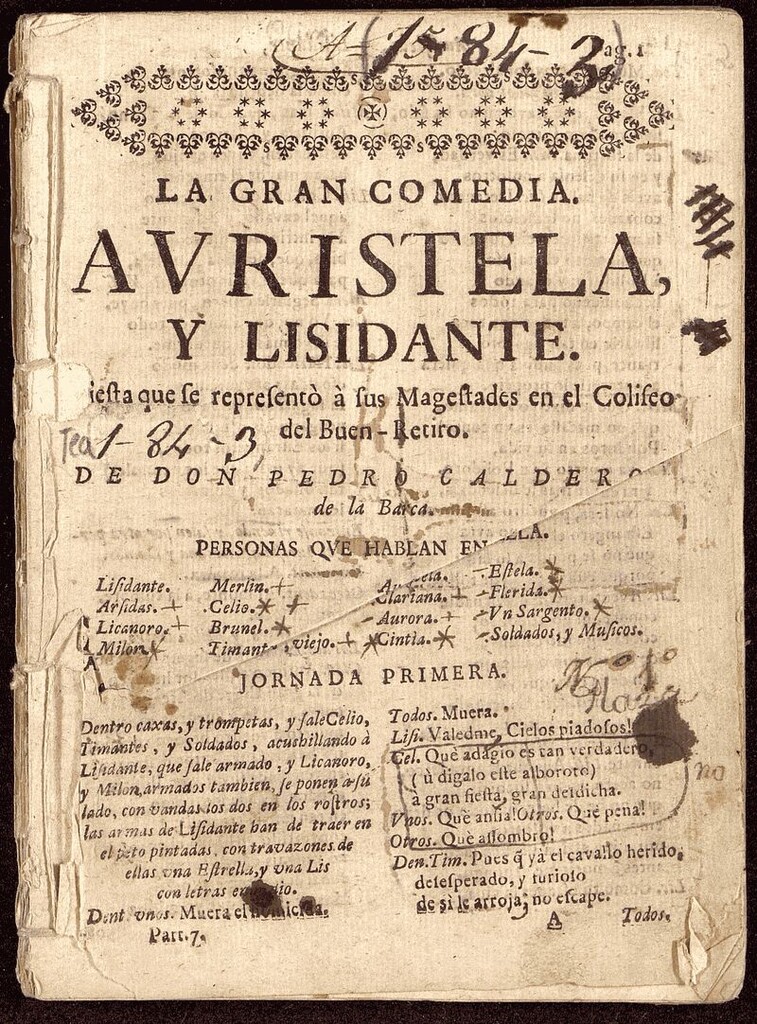 A = (75-84-3)
ag. 1
LA GRAN COMEDIA.
AVRISTELA,
Y LISIDANTE.
iesta que se representò à sus Magestades en el Coliseo
del Buen-Retiro.
Tea 1-84-3
DE DON PEDRO CALDERO
de la Barca.
PERSONAS QVE HABLAN EN ELLA.
Lisidante. Merlin. + Estela. *
Arsidas. + Celio. * + Clariana. + Flerida. *
Licanoro. + Brunel. * Aurora. + Vn Sargento. *
Milon. * Timant viejo. + Cintia. * Soldados, y Musicos.
JORNADA PRIMERA.
Dentro caxas, y trompetas, y sale Celio,
Timantes, y Soldados, acuchillando à
Lisidante, que sale armado, y Licanoro,
y Milon, armados tambien, se ponen a su
lado, con vandas los dos en los rostros;
las armas de Lisidante han de traer en
el peto pintadas, con travazones de
ellas vna Estrella, y vna Lis
con letras en medio.
Dent. vnos. Muera el homicida.
Part. 7.
Todos. Muera.
Lisi. Valedme, Cielos piadosos!
Cel. Què adagio es tan verdadero,
(ù digalo este alboroto)
à gran fiesta, gran desdicha.
Vnos. Què ansia! Otros. Què pena!
Otros. Què assombro!
Den. Tim. Pues q̃ yà el cavallo herido,
desesperado, y furioso
de sì le arroja; no escape.
A Todos.
no